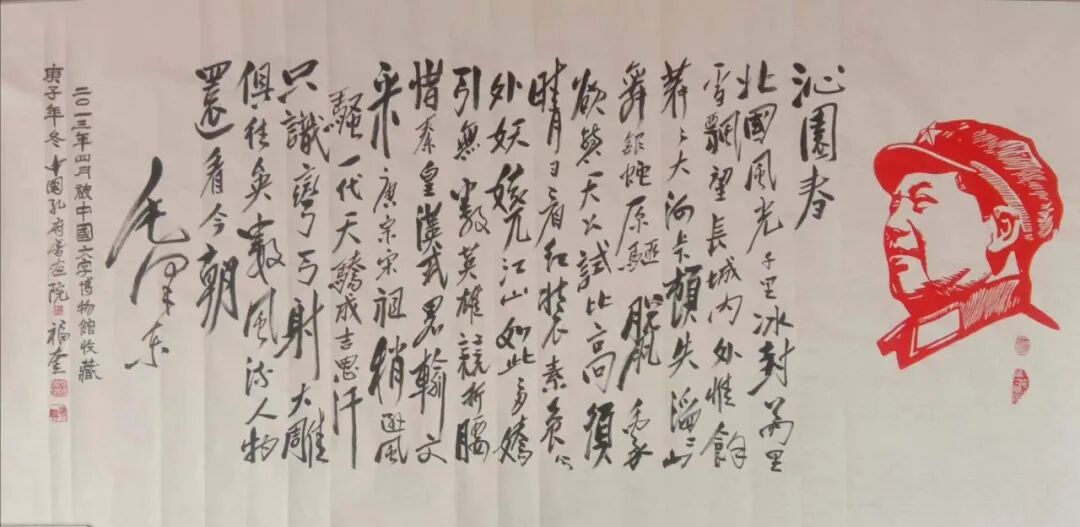 沁園春
北國風光千里冰封萬里
雪飄望長城内外惟餘
莽々大河上下頓失滔々山
舞銀蛇原驅臘象
欲與天公試比高須
晴日看红裝素裹分
外妖嬈江山如此多嬌
引無數英雄競折腰
惜秦皇漢武畧輸文
采唐宗宋祖稍遜風
騷一代天驕成吉思汗
只識彎弓射大雕
俱往矣數風流人物
還看今朝
毛澤東
二〇一三年四月被中國文字博物館收藏
庚子年冬中國孔府書画院福奎